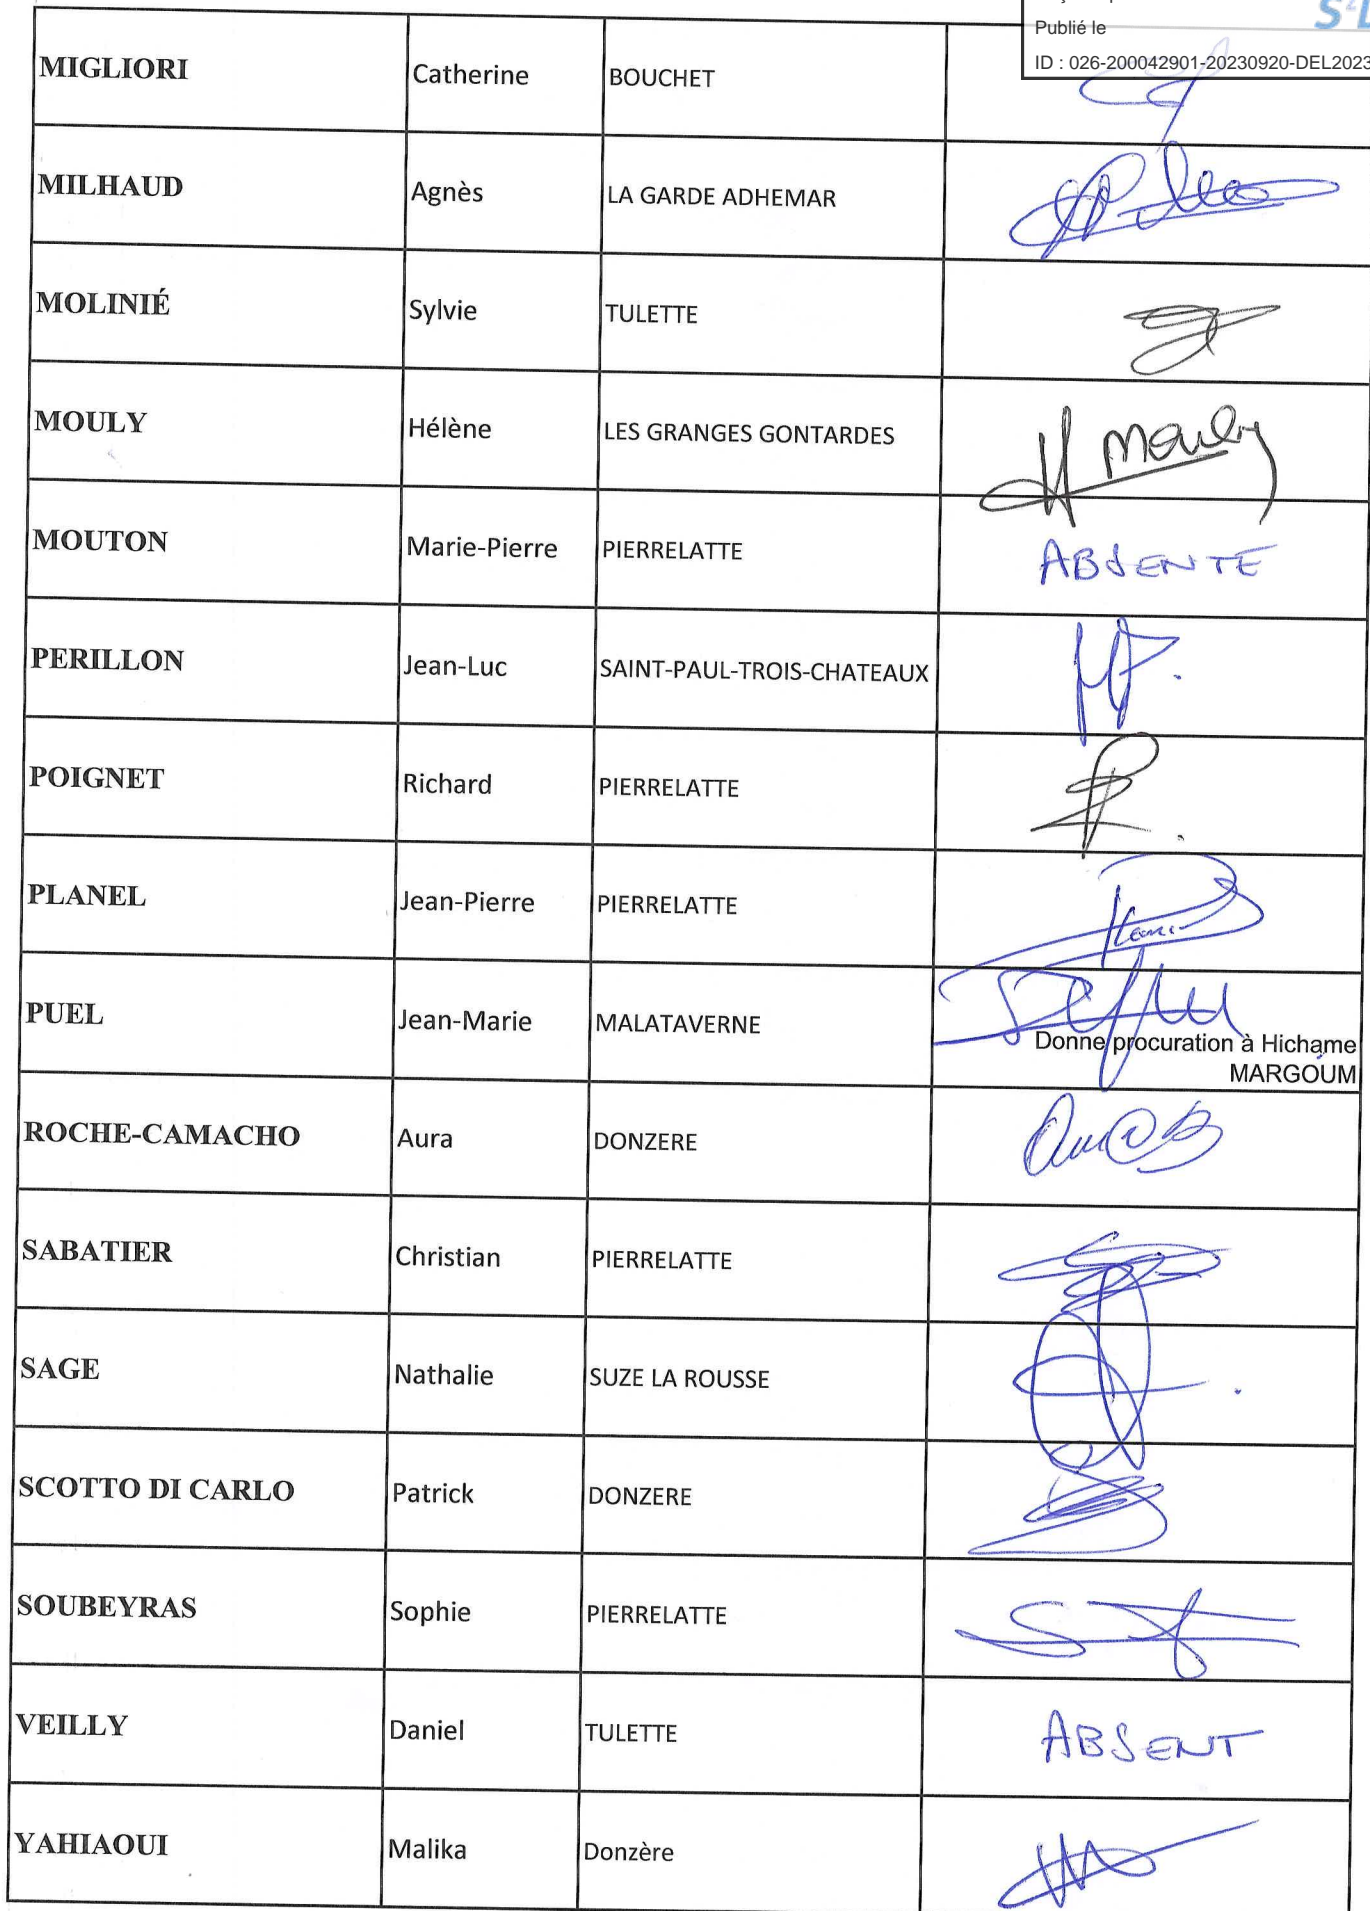 Publié le
ID : 026-200042901-20230920-DEL2023
MIGLIORI Catherine BOUCHET
MILHAUD Agnès LA GARDE ADHEMAR
MOLINIÉ Sylvie TULETTE
MOULY Hélène LES GRANGES GONTARDES H Mouly
MOUTON Marie-Pierre PIERRELATTE ABSENTE
PERILLON Jean-Luc SAINT-PAUL-TROIS-CHATEAUX
POIGNET Richard PIERRELATTE
PLANEL Jean-Pierre PIERRELATTE
PUEL Jean-Marie MALATAVERNE Donne procuration à Hichame
MARGOUM
ROCHE-CAMACHO Aura DONZERE
SABATIER Christian PIERRELATTE
SAGE Nathalie SUZE LA ROUSSE
SCOTTO DI CARLO Patrick DONZERE
SOUBEYRAS Sophie PIERRELATTE
VEILLY Daniel TULETTE ABSENT
YAHIAOUI Malika Donzère